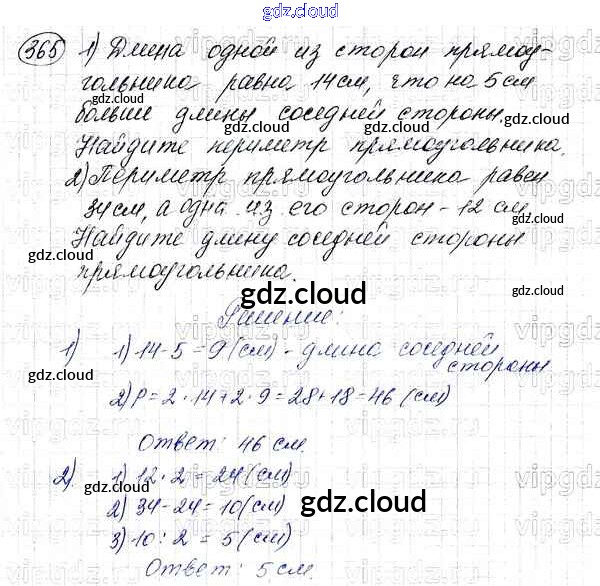 gdz.cloud
365 1) Длина одной из сторон прямоу-
гольника равна 14 см, что на 5 см
больше длины соседней стороны.
Найдите периметр прямоугольника.
2) Периметр прямоугольника равен
34 см, а одна из его сторон - 12 см.
Найдите длину соседней стороны
прямоугольника.
gdz.cloud
Решение:
1) 1) 14 - 5 = 9 (см) - длина соседней
стороны
2) P = 2 · 14 + 2 · 9 = 28 + 18 = 46 (см)
Ответ: 46 см.
2). 1) 12 · 2 = 24 (см)
2) 34 - 24 = 10 (см)
3) 10 : 2 = 5 (см)
Ответ: 5 см.
gdz.cloud